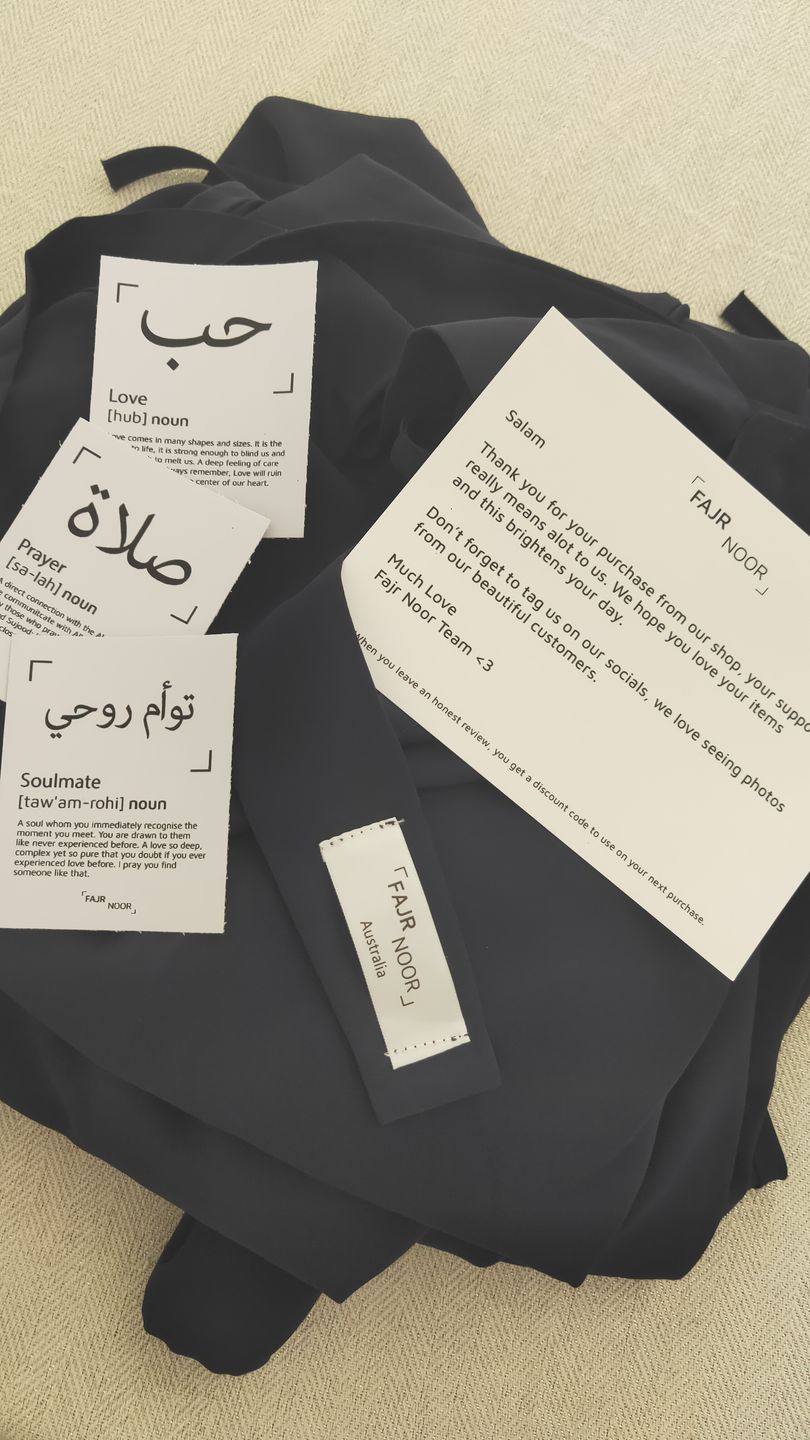 حب
Love
[hub] noun
comes in many shapes and sizes. It is the
to life, it is strong enough to blind us and
to melt us. A deep feeling of care
remember, Love will ruin
center of our heart.
صلاة
Prayer
[sa-lah] noun
direct connection with the
communitcate with
those who
Sujood
توأم روحي
Soulmate
[taw'am-rohi] noun
A soul whom you immediately recognise the
moment you meet. You are drawn to them
like never experienced before. A love so deep,
complex yet so pure that you doubt if you ever
experienced love before. I pray you find
someone like that.
FAJR
NOOR
FAJR
NOOR
Salam
Thank you for your purchase from our shop, your
really means alot to us. We hope you love your items
and this brightens your day.
Don't forget to tag us on our socials, we love seeing photos
from our beautiful customers.
Much Love
Fajr Noor Team <3
When you leave an honest review, you get a discount code to use on your next purchase.
FAJR NOOR
Australia